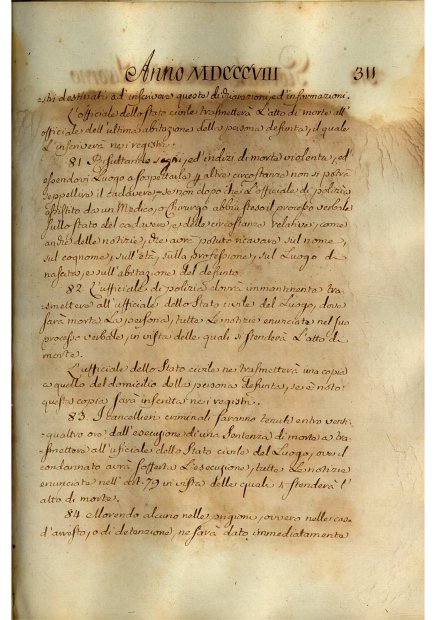 Anno MDCCCVIII 311
estri destinati ad inscrivere queste dichiarazioni, ed informazioni.
L'officiale dello stato civile trasmetterà L'atto di morte all'
officiale dell'ultima abitazione della persona defunta, il quale
L'inscriverà nei registri.
81 Risultando segni, ed indizi di morte violenta, ed
essendovi Luogo a sospettarla p altre circostanze non si potrà
seppellire il cadavere, se non dopo che L'officiale di polizia
assistito da un Medico, o Chirurgo abbia steso il processo verbale
sullo stato del cadavere, e delle circostanze relative, come
anche delle notizie, che avrà potuto ricavare sul nome,
sul cognome, sull'età, sulla professione, sul Luogo di
nascita, e sull'abitazione del defunto.
82. L'ufficiale di polizia dovrà immantinente tra-
smettere all'ufficiale dello Stato civile del Luogo, dove
sarà morta La persona, tutte Le notizie enunciate nel suo
processo verbale, in vista delle quali si stenderà L'atto di
morte.
L'ufficiale dello Stato civile ne trasmetterà una copia
a quello del domicilio della persona defunta, se è noto:
questa copia sarà inserita nei registri.
83 I cancellieri criminali saranno tenuti entro venti-
quattro ore dall'esecuzione di una Sentenza di morte a tra-
smettere all'uficiale dello Stato civile del Luogo, ove il
condannato avrà sofferta L'esecuzione, tutte Le notizie
enunciate nell'art. 79 in vista delle quali si stenderà l'
atto di morte.
84 Morendo alcuno nelle prigioni, ovvero nelle case
d'arresto, o di detenzione, ne sarà dato immediatamente